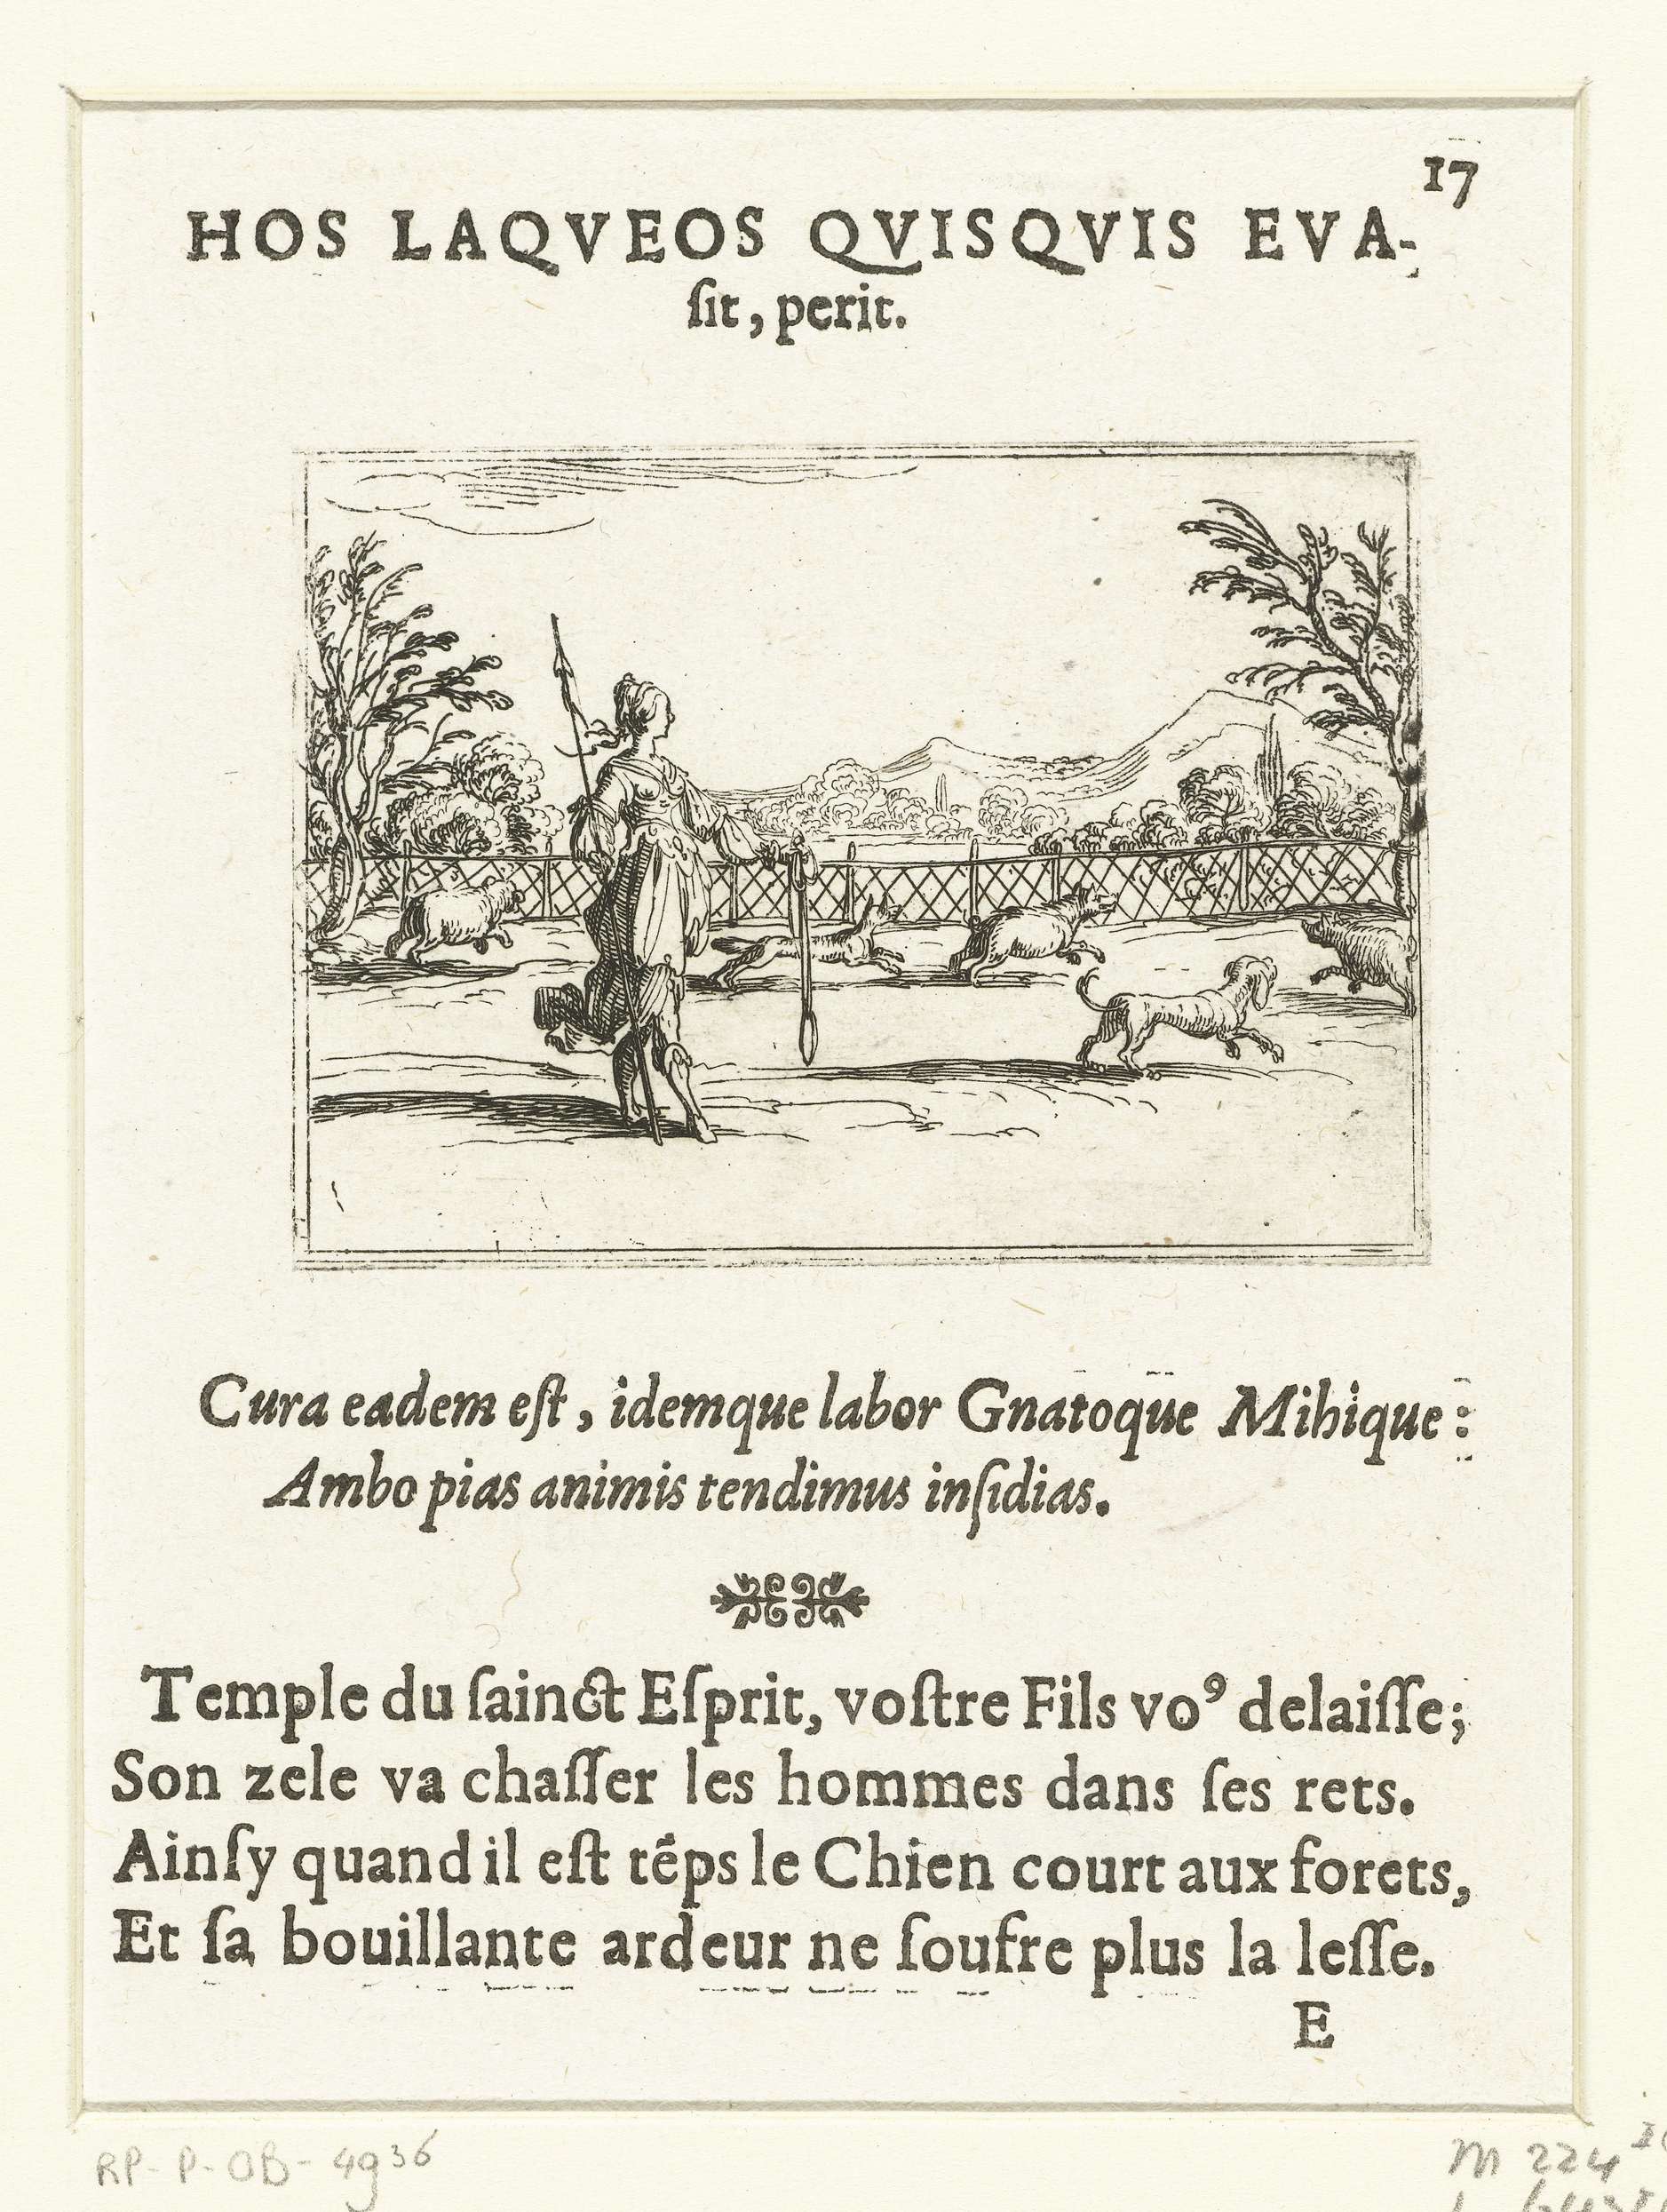 17
HOS LAQVEOS QVISQVIS EVA-
ſit, perit.
Cura eadem eſt, idemque labor Gnatoque Mihique:
Ambo pias animis tendimus inſidias.
Temple du ſainct Eſprit, voſtre Fils voꝰ delaiſſe;
Son zele va chaſſer les hommes dans ſes rets.
Ainſy quand il eſt tẽps le Chien court aux forets,
Et ſa bouillante ardeur ne ſoufre plus la leſſe.
E
RP-P-OB-4936
M 224